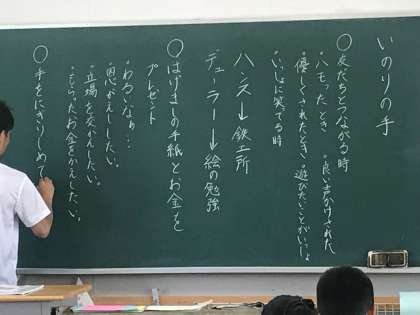 いのりの手
○友だちとつながる時
・ハモったとき ・良い声かけされた
・優しくされたとき ・遊びたいことがいっしょ
・いっしょに笑てる時
ハンス→鉄工所
デューラー→絵の勉強
○はげましの手紙とお金を
プレゼント
・わるいなぁ…
・恩がえししたい。
・立場を交かえしたい。
・もらったお金をかえしたい。
○手をにぎりしめて